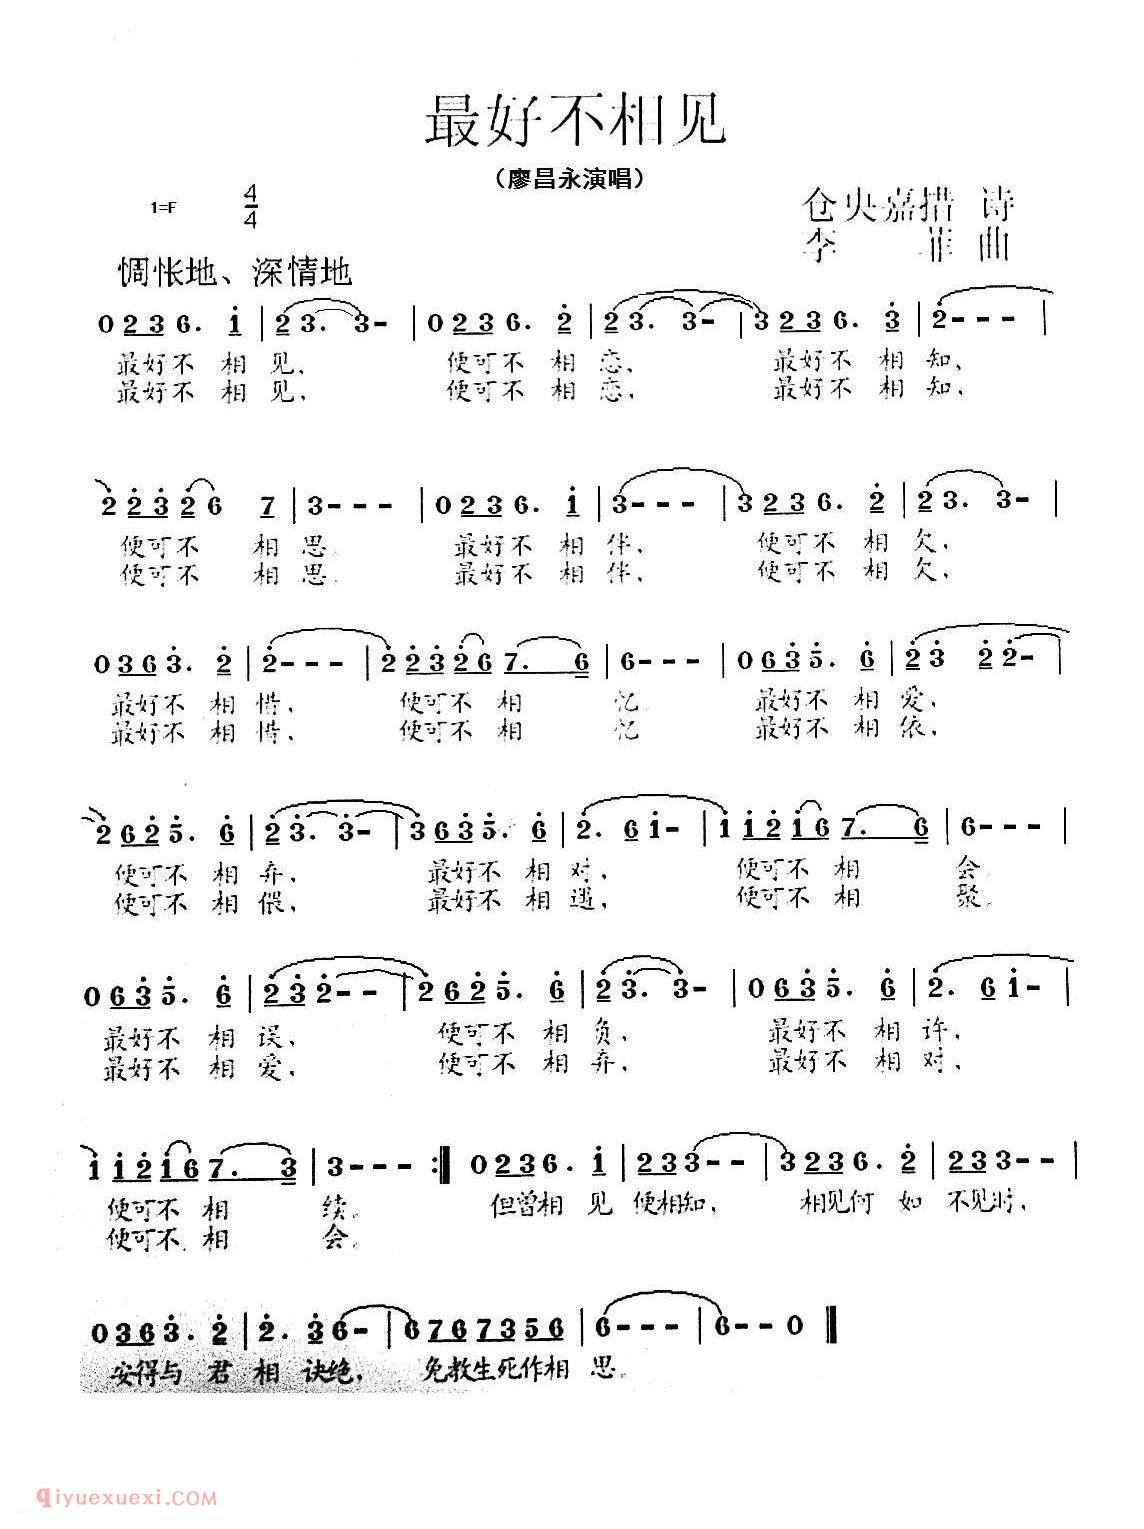 最好不相见
（廖昌永演唱）
1=F 4/4
仓央嘉措 诗
李 曲
惆怅地、深情地
0 2 3 6. 1 | 2 3. 3 - | 0 2 3 6. 2 | 2 3. 3 - | 3 2 3 6. 3 | 2 - - - |
最好不 相 见， 便可不 相 恋， 最好不 相 知，
最好不 相 见， 便可不 相 恋， 最好不 相 知，
2 2 3 2 6 7 | 3 - - - | 0 2 3 6. 1 | 3 - - - | 3 2 3 6. 2 | 2 3. 3 - |
便可不 相 思。 最好不 相 伴， 便可不 相 欠，
便可不 相 思。 最好不 相 伴， 便可不 相 欠，
0 3 6 3. 2 | 2 - - - | 2 2 3 2 6 7. 6 | 6 - - - | 0 6 3 5. 6 | 2 3 2 2 - |
最好不 相 惜， 便可不 相 忆。 最好不 相 爱，
最好不 相 惜， 便可不 相 忆 最好不 相 依，
2 6 2 5. 6 | 2 3. 3 - | 3 6 3 5. 6 | 2. 6 1 - | 1 1 2 1 6 7. 6 | 6 - - - |
便可不 相 弃， 最好不 相 对， 便可不 相 会。
便可不 相 偎， 最好不 相 遇， 便可不 相 聚。
0 6 3 5. 6 | 2 3 2 - - | 2 6 2 5. 6 | 2 3. 3 - | 0 6 3 5. 6 | 2. 6 1 - |
最好不 相 误， 便可不 相 负， 最好不 相 许，
最好不 相 爱， 便可不 相 弃， 最好不 相 对，
1 1 2 1 6 7. 3 | 3 - - - :| 0 2 3 6. 1 | 2 3 3 - - | 3 2 3 6. 2 | 2 3 3 - - |
便可不 相 续。 但曾相 见 便相知， 相见何 如 不见时，
便可不 相 会。
0 3 6 3. 2 | 2. 3 6 - | 6 7 6 7 3 5 6 | 6 - - - | 6 - - 0 ‖
安得与 君 相 诀绝， 免教生死作相 思。
qiyuexuexi.COM